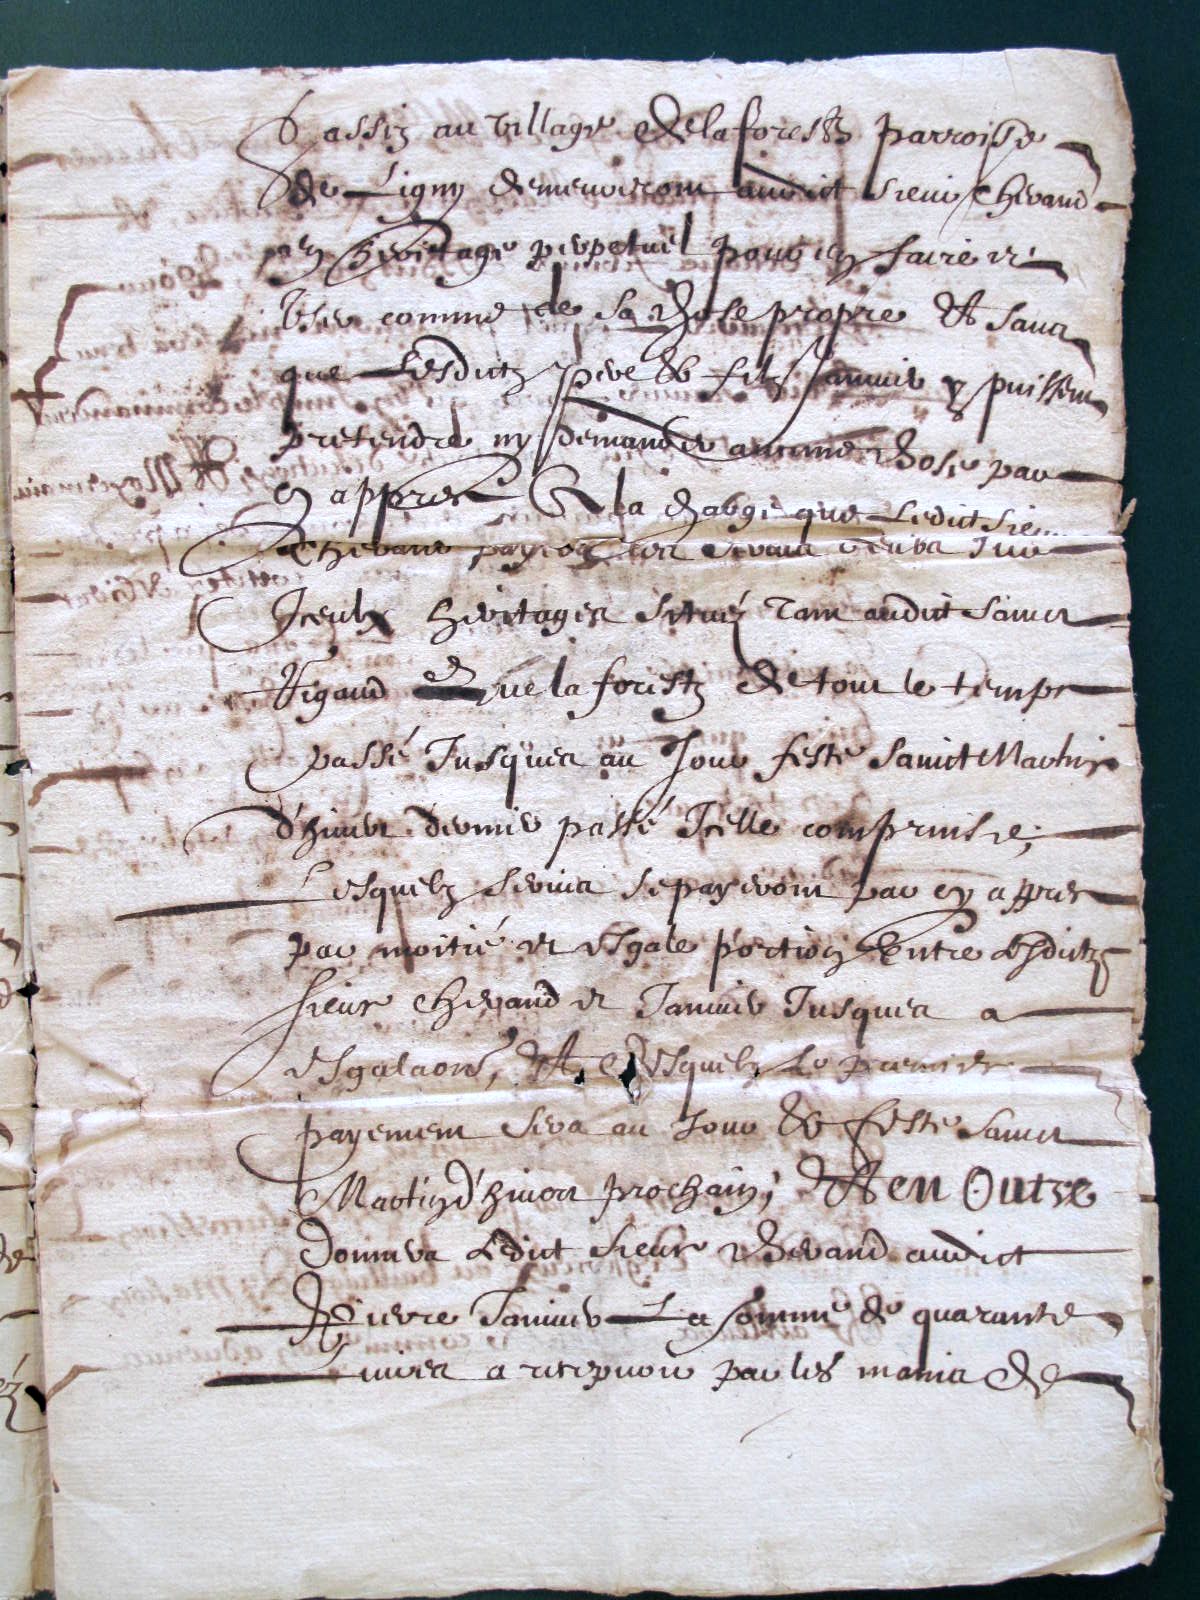 assiz au village de la forestz parroisse
de Ligny demeureront audict sieur Chevand
en heritage perpetuel pour en faire et
User comme de sa chose propre Et sans
que Lesdictz pere et filz Jamier y puissent
pretendre ny demander aucune chose par
cy appres A la charge que Ledict sieur
Chevand payera les servis deubz sur
Iceulx heritages situés tant audict Sainct
Rigaud que la forestz de tout le temps
passé Jusques au Jour feste Sainct Martin
d'hiver dernier passé Icelle comprinse,
Lesquelz servis se payeront par cy appres
par moitié et esgale portion Entre Lesdictz
sieur Chevand et Jamier Jusques a
Esgalaon, Et Desquelz Le premier
payement sera au Jour de feste Sainct
Martin d'hiver prochain, Et en Outre
donnera Ledict sieur Chevand audict
Pierre Jamier La somme de quarante
Livres a recepvoir par les mains de